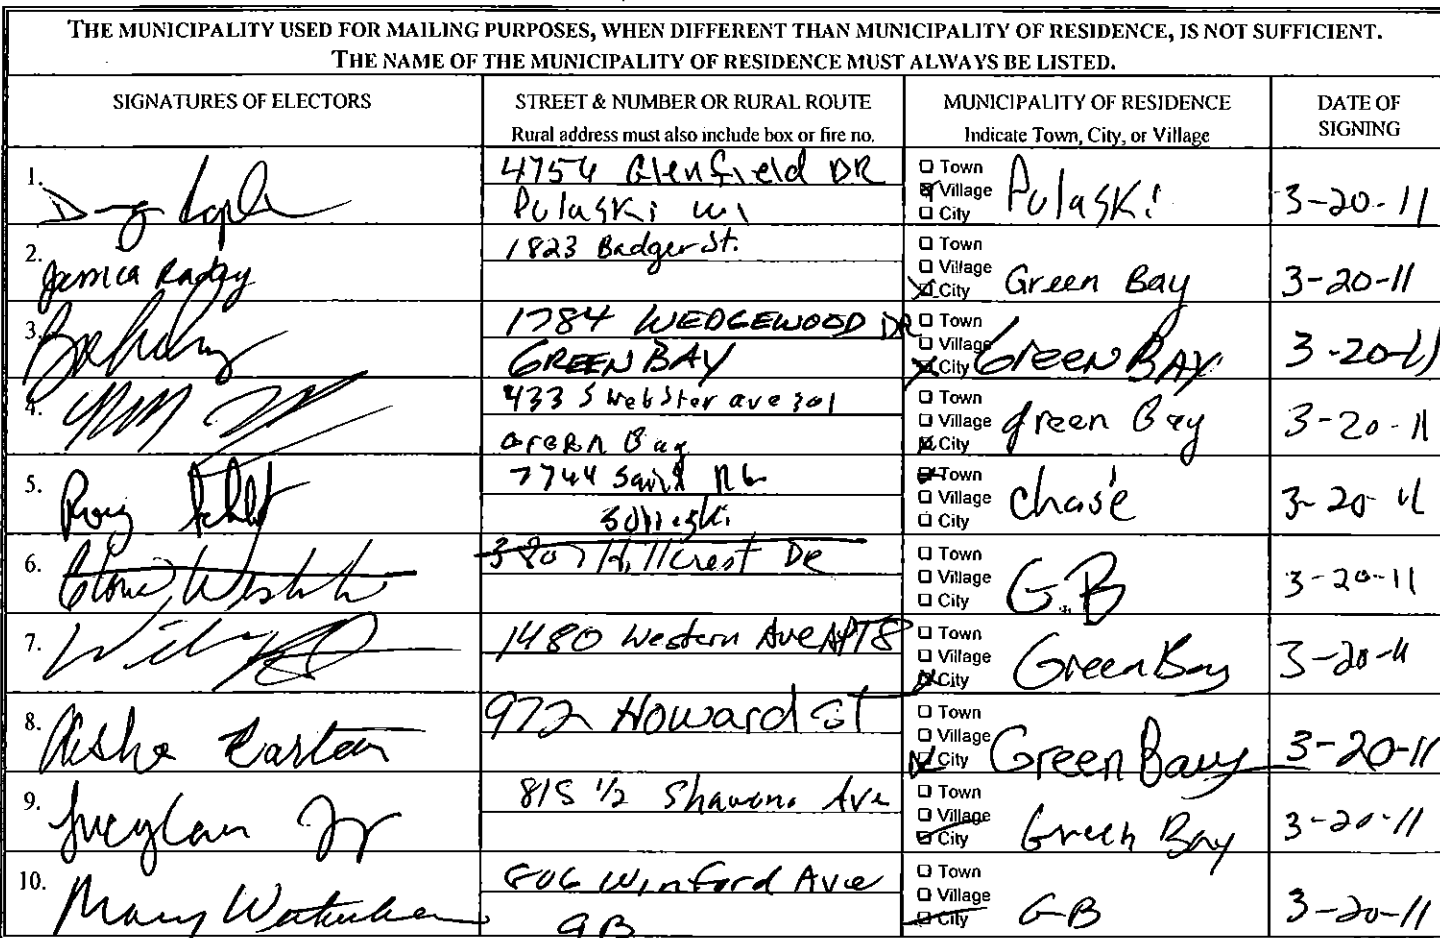 THE MUNICIPALITY USED FOR MAILING PURPOSES, WHEN DIFFERENT THAN MUNICIPALITY OF RESIDENCE, IS NOT SUFFICIENT.
THE NAME OF THE MUNICIPALITY OF RESIDENCE MUST ALWAYS BE LISTED.
SIGNATURES OF ELECTORS
STREET & NUMBER OR RURAL ROUTE
Rural address must also include box or fire no.
MUNICIPALITY OF RESIDENCE
Indicate Town, City, or Village
DATE OF SIGNING
1. 4754 Glenfield DR
Pulaski WI
Town
Village
City
Pulaski 3-20-11
2. Jessica 1823 Badger St.
Town
Village
City
Green Bay 3-20-11
3. 1784 WEDGEWOOD DR
GREEN BAY
Town
Village
City
GREEN BAY 3-20-11
4. 433 S Webster ave 301
Green Bay
Town
Village
City
green Bay 3-20-11
5. 7744
Sobieski
Town
Village
City
Chase 3-20-11
6. 3807 Hillcrest DR
Town
Village
City
G.B 3-20-11
7. 1480 Western Ave APT 8
Town
Village
City
Green Bay 3-20-11
8. 972 Howard St
Town
Village
City
Green Bay 3-20-11
9. Jr 815 1/2 Shawano Ave
Town
Village
City
Green Bay 3-20-11
10. Mary 806 Winford Ave
GB
Town
Village
City
GB 3-20-11